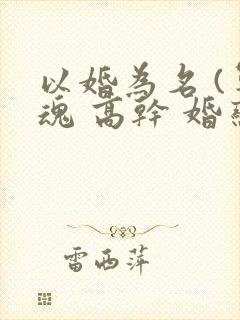 以婚為名(
魂 高幹 婚
雷西萍